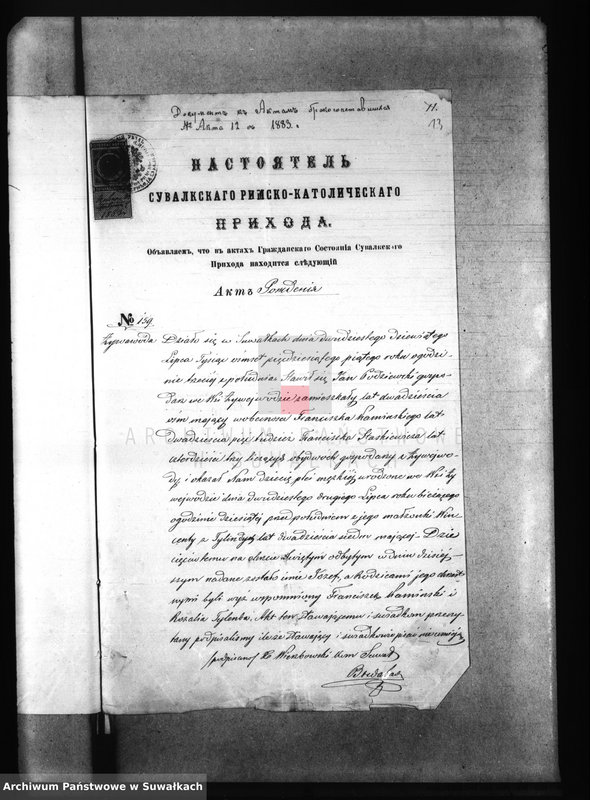 Документъ къ Актамъ бракосочетавшихся
№ Акта 12 съ 1883 г.
11.
13
НАСТОЯТЕЛЬ
СУВАЛКСКАГО РИМСКО-КАТОЛИЧЕСКАГО
ПРИХОДА.
Объявляемъ, что въ актахъ Гражданскаго Состоянія Сувалкскаго
Прихода находится слѣдующій
Актъ Рожденія
№ 159.
Żywawoda Działo się w Suwałkach dnia dwudziestego dziewiątego
Lipca Tysiąc ośmset pięćdziesiątego piątego roku o godzi-
nie trzeciej z południa. Stawił się Jan Godzewski gospo-
darz we Wsi Żywejwodzie zamieszkały lat dwadzieścia
ośm mający w obecności Franciszka Kamińskiego lat
dwadzieścia pięć tudzież Franciszka Staśkiewicza lat
czterdzieści trzy liczących obydwóch gospodarzy z Żywejwo-
dy, i okazał Nam dziecię płci męzkiej urodzone we Wsi Ży
wejwodzie dnia dwudziestego drugiego Lipca roku bieżącego
o godzinie dziesiątej przed południem z jego małżonki Win-
centy z Tylindów lat dwadzieścia siedm mającej – Dzie
cięciu temu na chrzcie świętym odbytym w dniu dzisiej-
szym nadane zostało imie Józef, a Rodzicami jego chrzest
nymi byli wyż wspomniony Franciszek Kamiński i
Rozalia Tylenda. Akt ten stawającemu i świadkom przeczy
tany podpisaliśmy ile że stawający i świadkowie pisać nie umieją
(podpisano) X. Wierzbowski Adm Suwał
ARCHIWUM PAŃSTWOWE
Archiwum Państwowe w Suwałkach